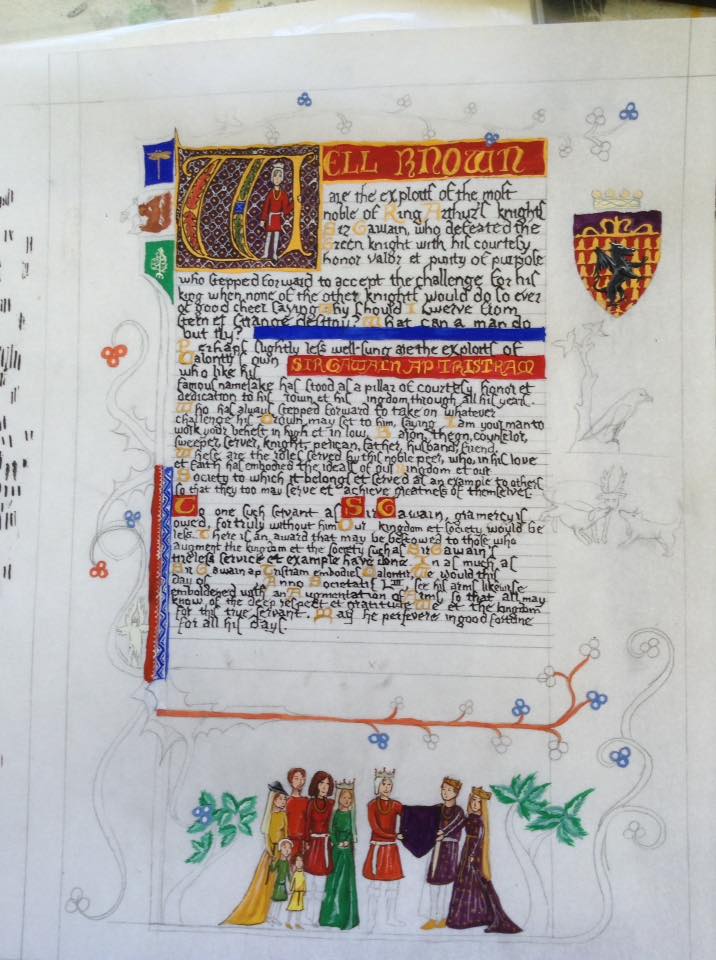 WELL KNOWN
are the exploits of the most
noble of King Arthur's knights
Sir Gawain, who defeated the
Green knight with his courtesy
honor valor et purity of purpose
who stepped forward to accept the challenge for his
king when none of the other knights would do so ever
of good cheer saying Why should I swerve from
stern et strange destiny? What can a man do
but try?
Perhaps slightly less well-sung are the exploits of
alontis own SIR GAWAIN AP TRISTRAM
who like his
famous namesake has stood as a pillar of courtesy honor et
dedication to his rown et his ingdom through all his years.
Who has always stepped forward to take on whatever
challenge his Crown may set to him, saying I am your man to
work your behest in high et in low. Baron, Thegn, counselor,
sweeper, server, knight, pelican, father, husband, friend.
These are the roles served by this noble peer, who, in his love
et faith has embodied the ideals of our Kingdom et our
Society to which it belongs et served as an example to others
so that they too may serve et achieve greatness of themselves.
To one such servant as Sir Gawain, gramercy is
owed, for truly without him Our kingdom et society would be
less. There is an award that may be bestowed to those who
augment the kingdom et the society such as Sir Gawain's
tireless service et example have done. In as much as
Sir Gawain ap Tristram embodies alontis, We would this
day of Anno Societatis L see his arms likewise
emboldened with an Augmentation of Arms, so that all may
know of the deep respect et gratitude We et the kingdom
for this true servant. May he persevere in good fortune
for all his days.